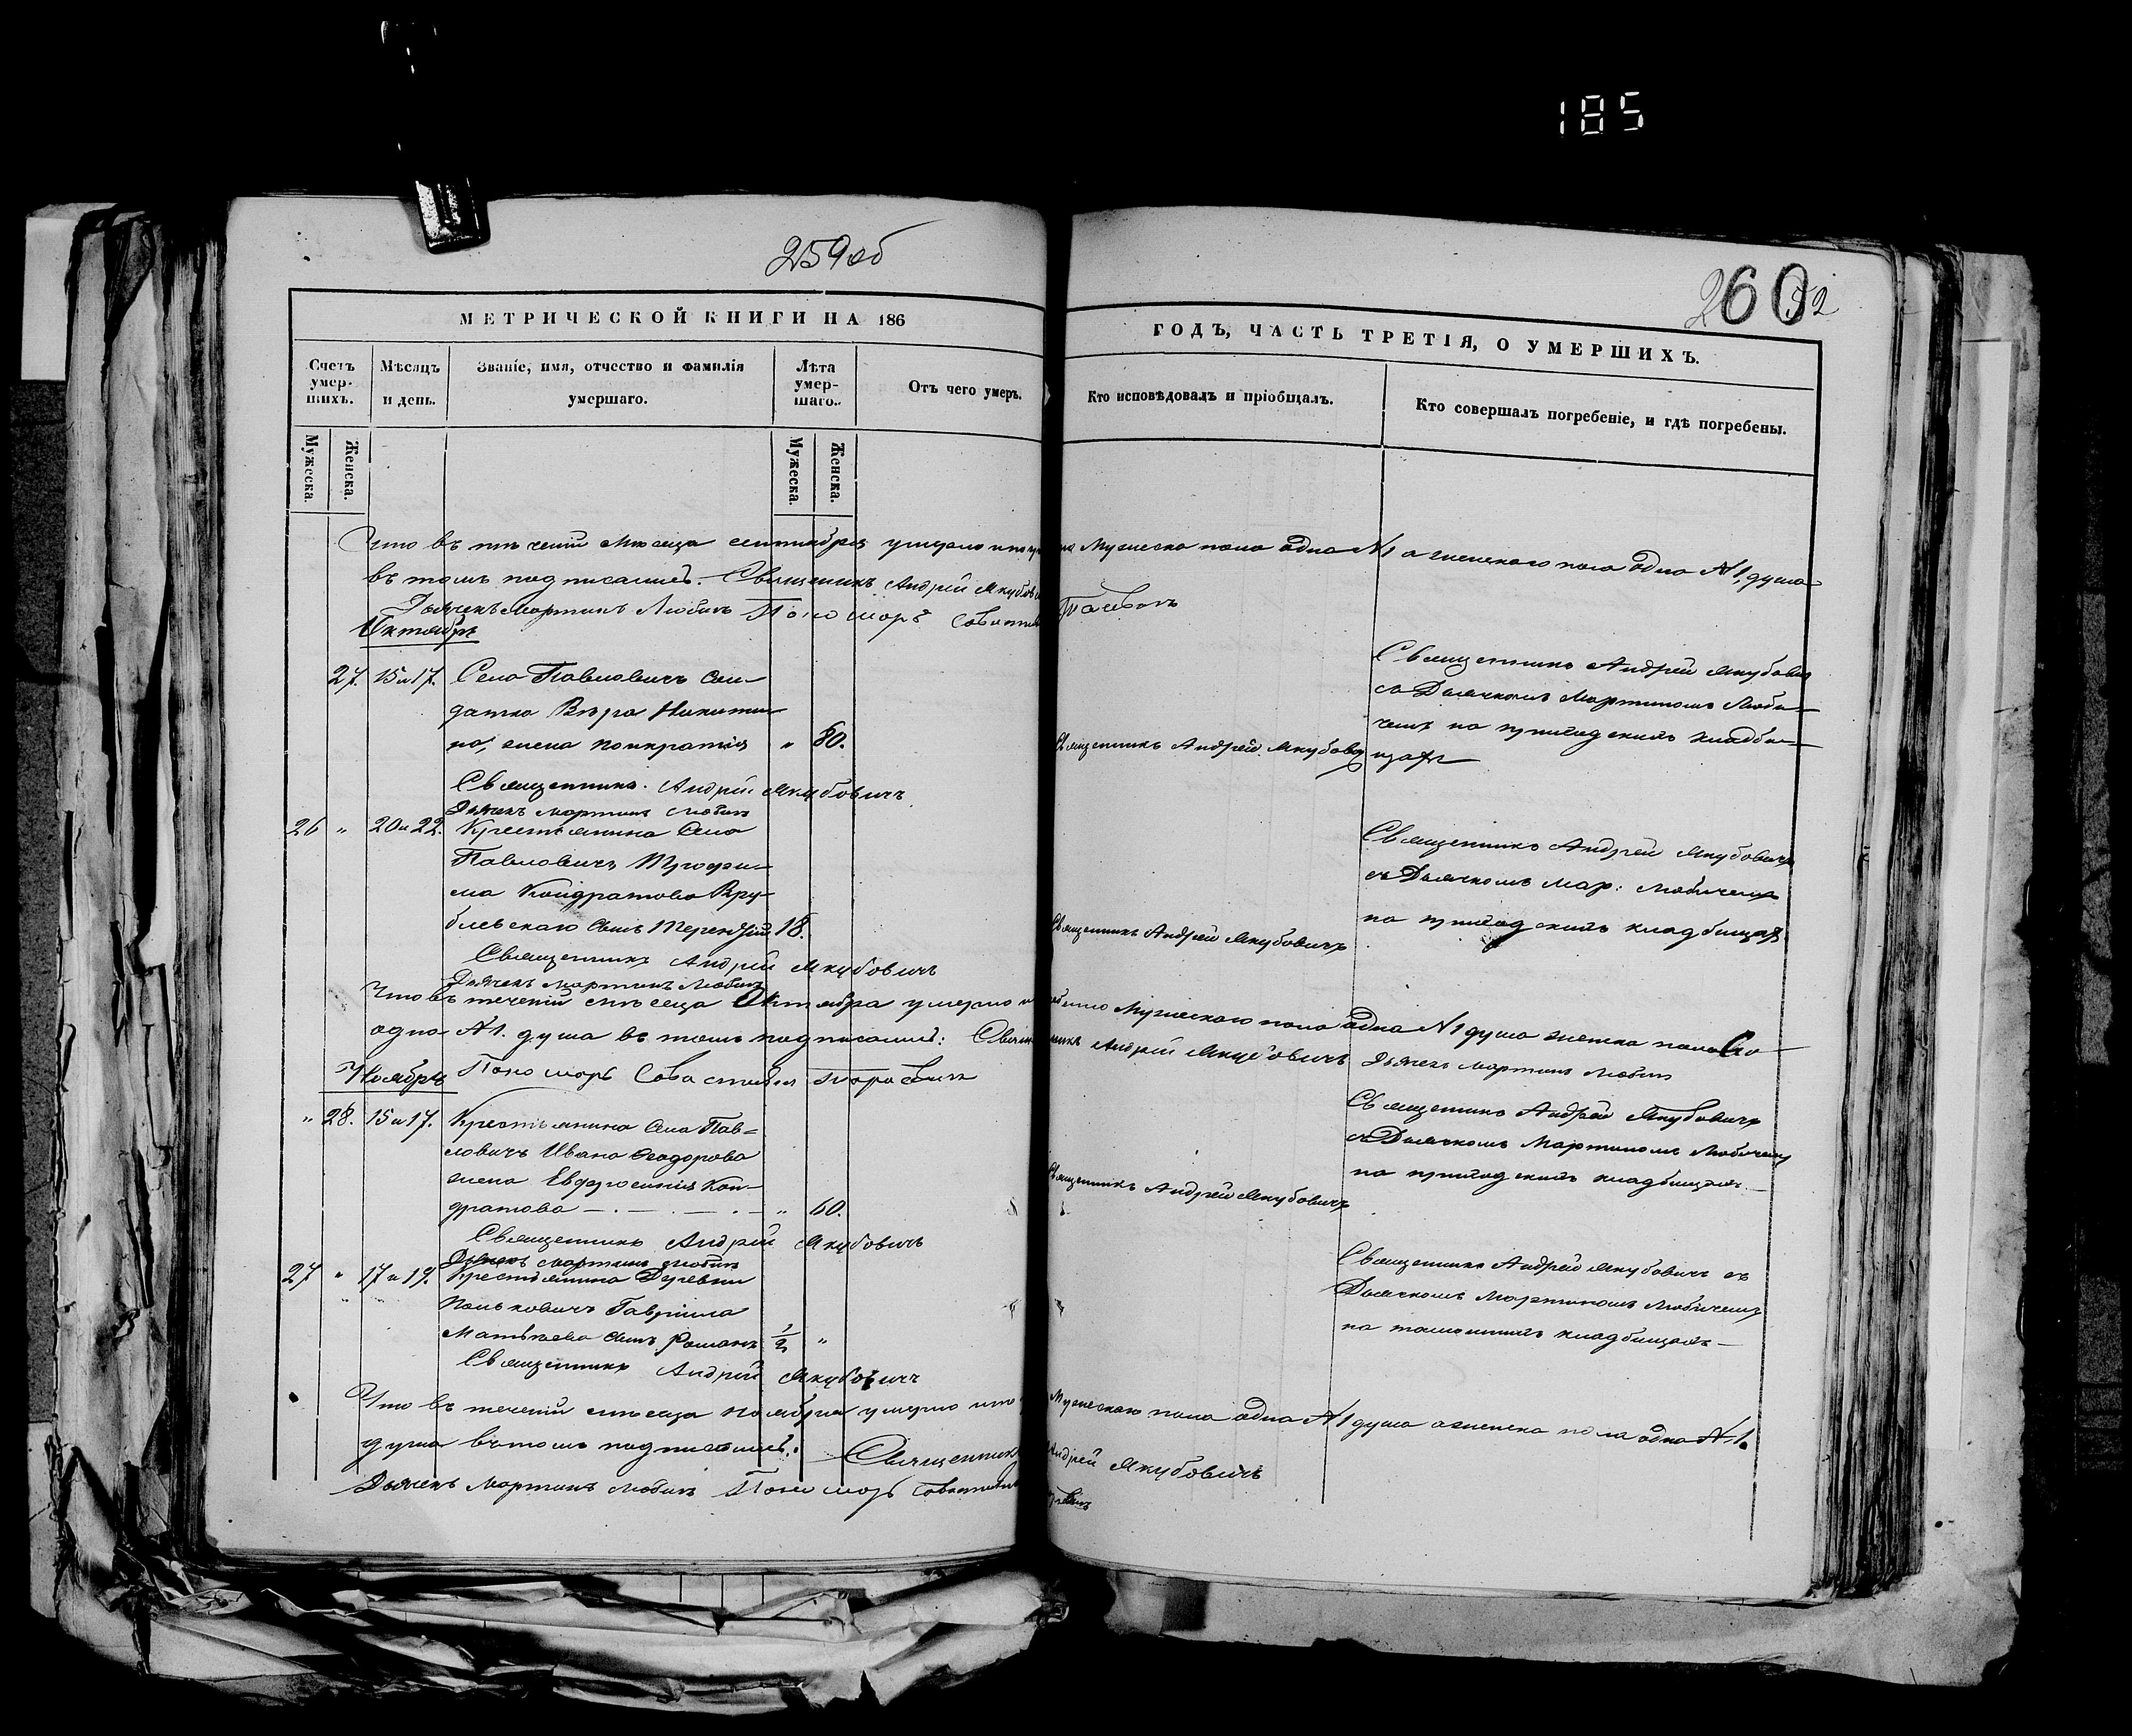 185
259об
260
52
МЕТРИЧЕСКОЙ КНИГИ НА 186
ГОДЪ, ЧАСТЬ ТРЕТІЯ, О УМЕРШИХЪ.
Счетъ умер-шихъ.
Мѣсяцъ и день.
Званіе, имя, отчество и фамилія умершаго.
Лѣта умер-шаго.
Отъ чего умеръ.
Кто исповѣдовалъ и пріобщалъ.
Кто совершалъ погребеніе, и гдѣ погребены.
Мужеска.
Женска.
Мужеска.
Женска.
Что въ теченіи Мѣсеца сентября умерло
Мужеска пола одна №1 а женскаго пола одна №1, душа
въ томъ подписались. Священникъ Андрей Якубов
Дьячекъ Мартинъ Любич Пономарь
Октябрь
27. 15 и 17. Села Павловичъ сол-
датка Вѣра Никити-
на, жена Понкратія " 80.
Священникъ Андрей Якубович
Священникъ Андрей Якубович
съ Дьячкомъ Мартиномъ Люби-
чемъ на приходскихъ кладби-
щахъ
Священникъ Андрей Якубовичъ
Дьячекъ Мартинъ Любич
26 " 20 и 22. Крестьянина Села
Павловичъ Трофи-
ма Кондратова Вру-
блевскаго сынъ Терентій 18.
Священникъ Андрей Якубовичъ
Священникъ Андрей Якубовичъ
съ Дьячкомъ Мар: Любичемъ
на приходскихъ кладбищахъ
Священникъ Андрей Якубовичъ
Дьячекъ Мартинъ Любич
Что въ теченіи мѣсеца Октября умерло
Мужескаго пола одна №1 душа женска пола
одна №1. душа въ томъ подписались: Священникъ Андрей Якубовичъ Дьячекъ Мартинъ Любич
Пономарь
Ноябрь
" 28. 15 и 17. Крестьянина Села Пав=
ловичъ Ивана Феодорова
жена Евфросинія Кон-
дратова " 60.
Священникъ Андрей Якубовичъ
Священникъ Андрей Якубовичъ
съ Дьячкомъ Мартиномъ Любичемъ
на приходскихъ кладбищахъ
Священникъ Андрей Якубовичъ
Дьячекъ Мартинъ Любич
27 " 17 и 19. Крестьянина Деревни
Гавріила
Матѣева сынъ Романъ 1/2 "
Священникъ Андрей Якубовичъ съ
Дьячкомъ Мартиномъ Любичемъ
на кладбищахъ
Священникъ Андрей Якубович
Что въ теченіи мѣсеца Ноября умерло
Мужескаго пола одна №1 душа а женска пола одна №1.
душа въ томъ подписались: Священникъ Андрей Якубовичъ
Дьячекъ Мартинъ Любич Пономарь